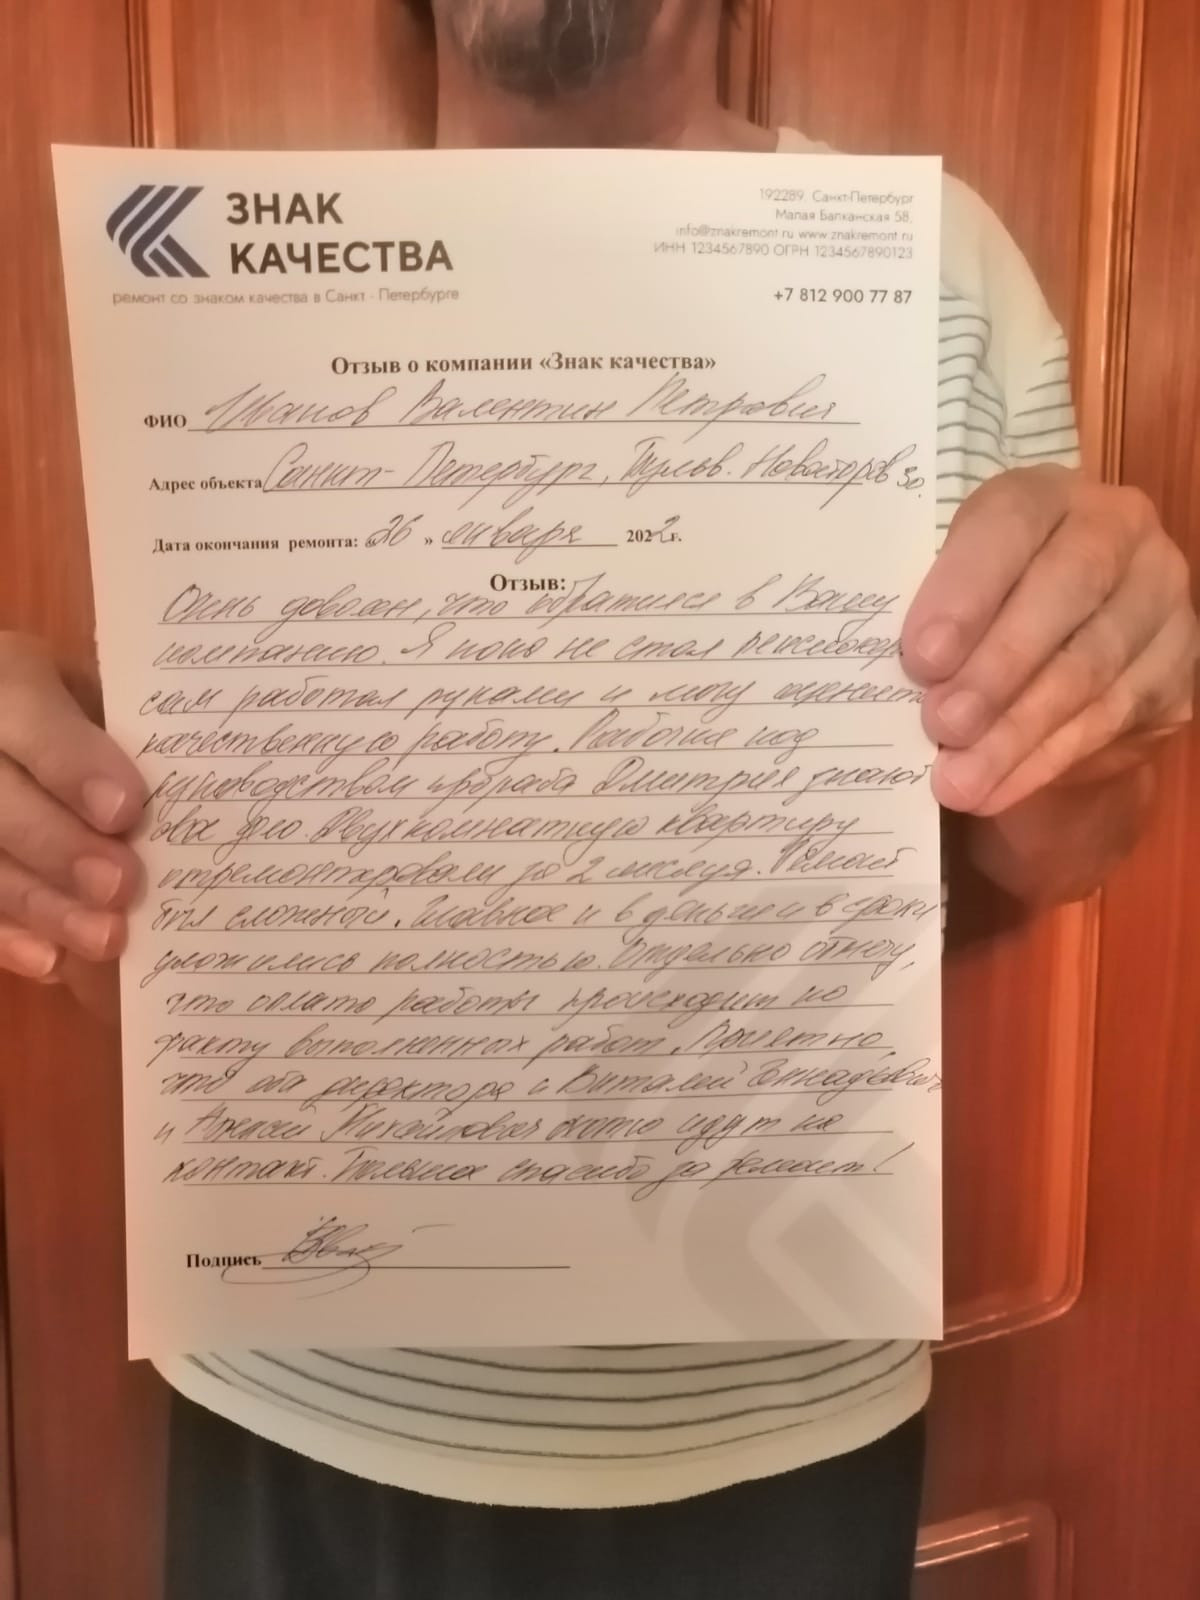 ЗНАК
КАЧЕСТВА
ремонт со знаком качества в Санкт - Петербурге
192289, Санкт-Петербург
Малая Балканская 58,
info@znakremont.ru www.znakremont.ru
ИНН 1234567890 ОГРН 1234567890123
+7 812 900 77 87
Отзыв о компании «Знак качества»
ФИО Иванов Валентин Петрович
Адрес объекта Санкт-Петербург, Бульв. Новаторов 30.
Дата окончания ремонта: «26» января 2022г.
Отзыв:
Очень доволен, что обратился в Вашу
компанию. Я пока не стал пенсионером
сам работал руками и могу оценить
качественную работу. Рабочие под
руководством прораба Дмитрия знают
свое дело. Двухкомнатную квартиру
отремонтировали за 2 месяца. Ремонт
был сложный. Главное и в деньги и в сроки
уложились полностью. Отдельно отмечу,
что оплата работы происходит по
факту выполненных работ. Приятно,
что оба директора и Виталий Геннадьевич
и Алексей Михайлович охотно идут на
контакт. Большое спасибо за ремонт!
Подпись